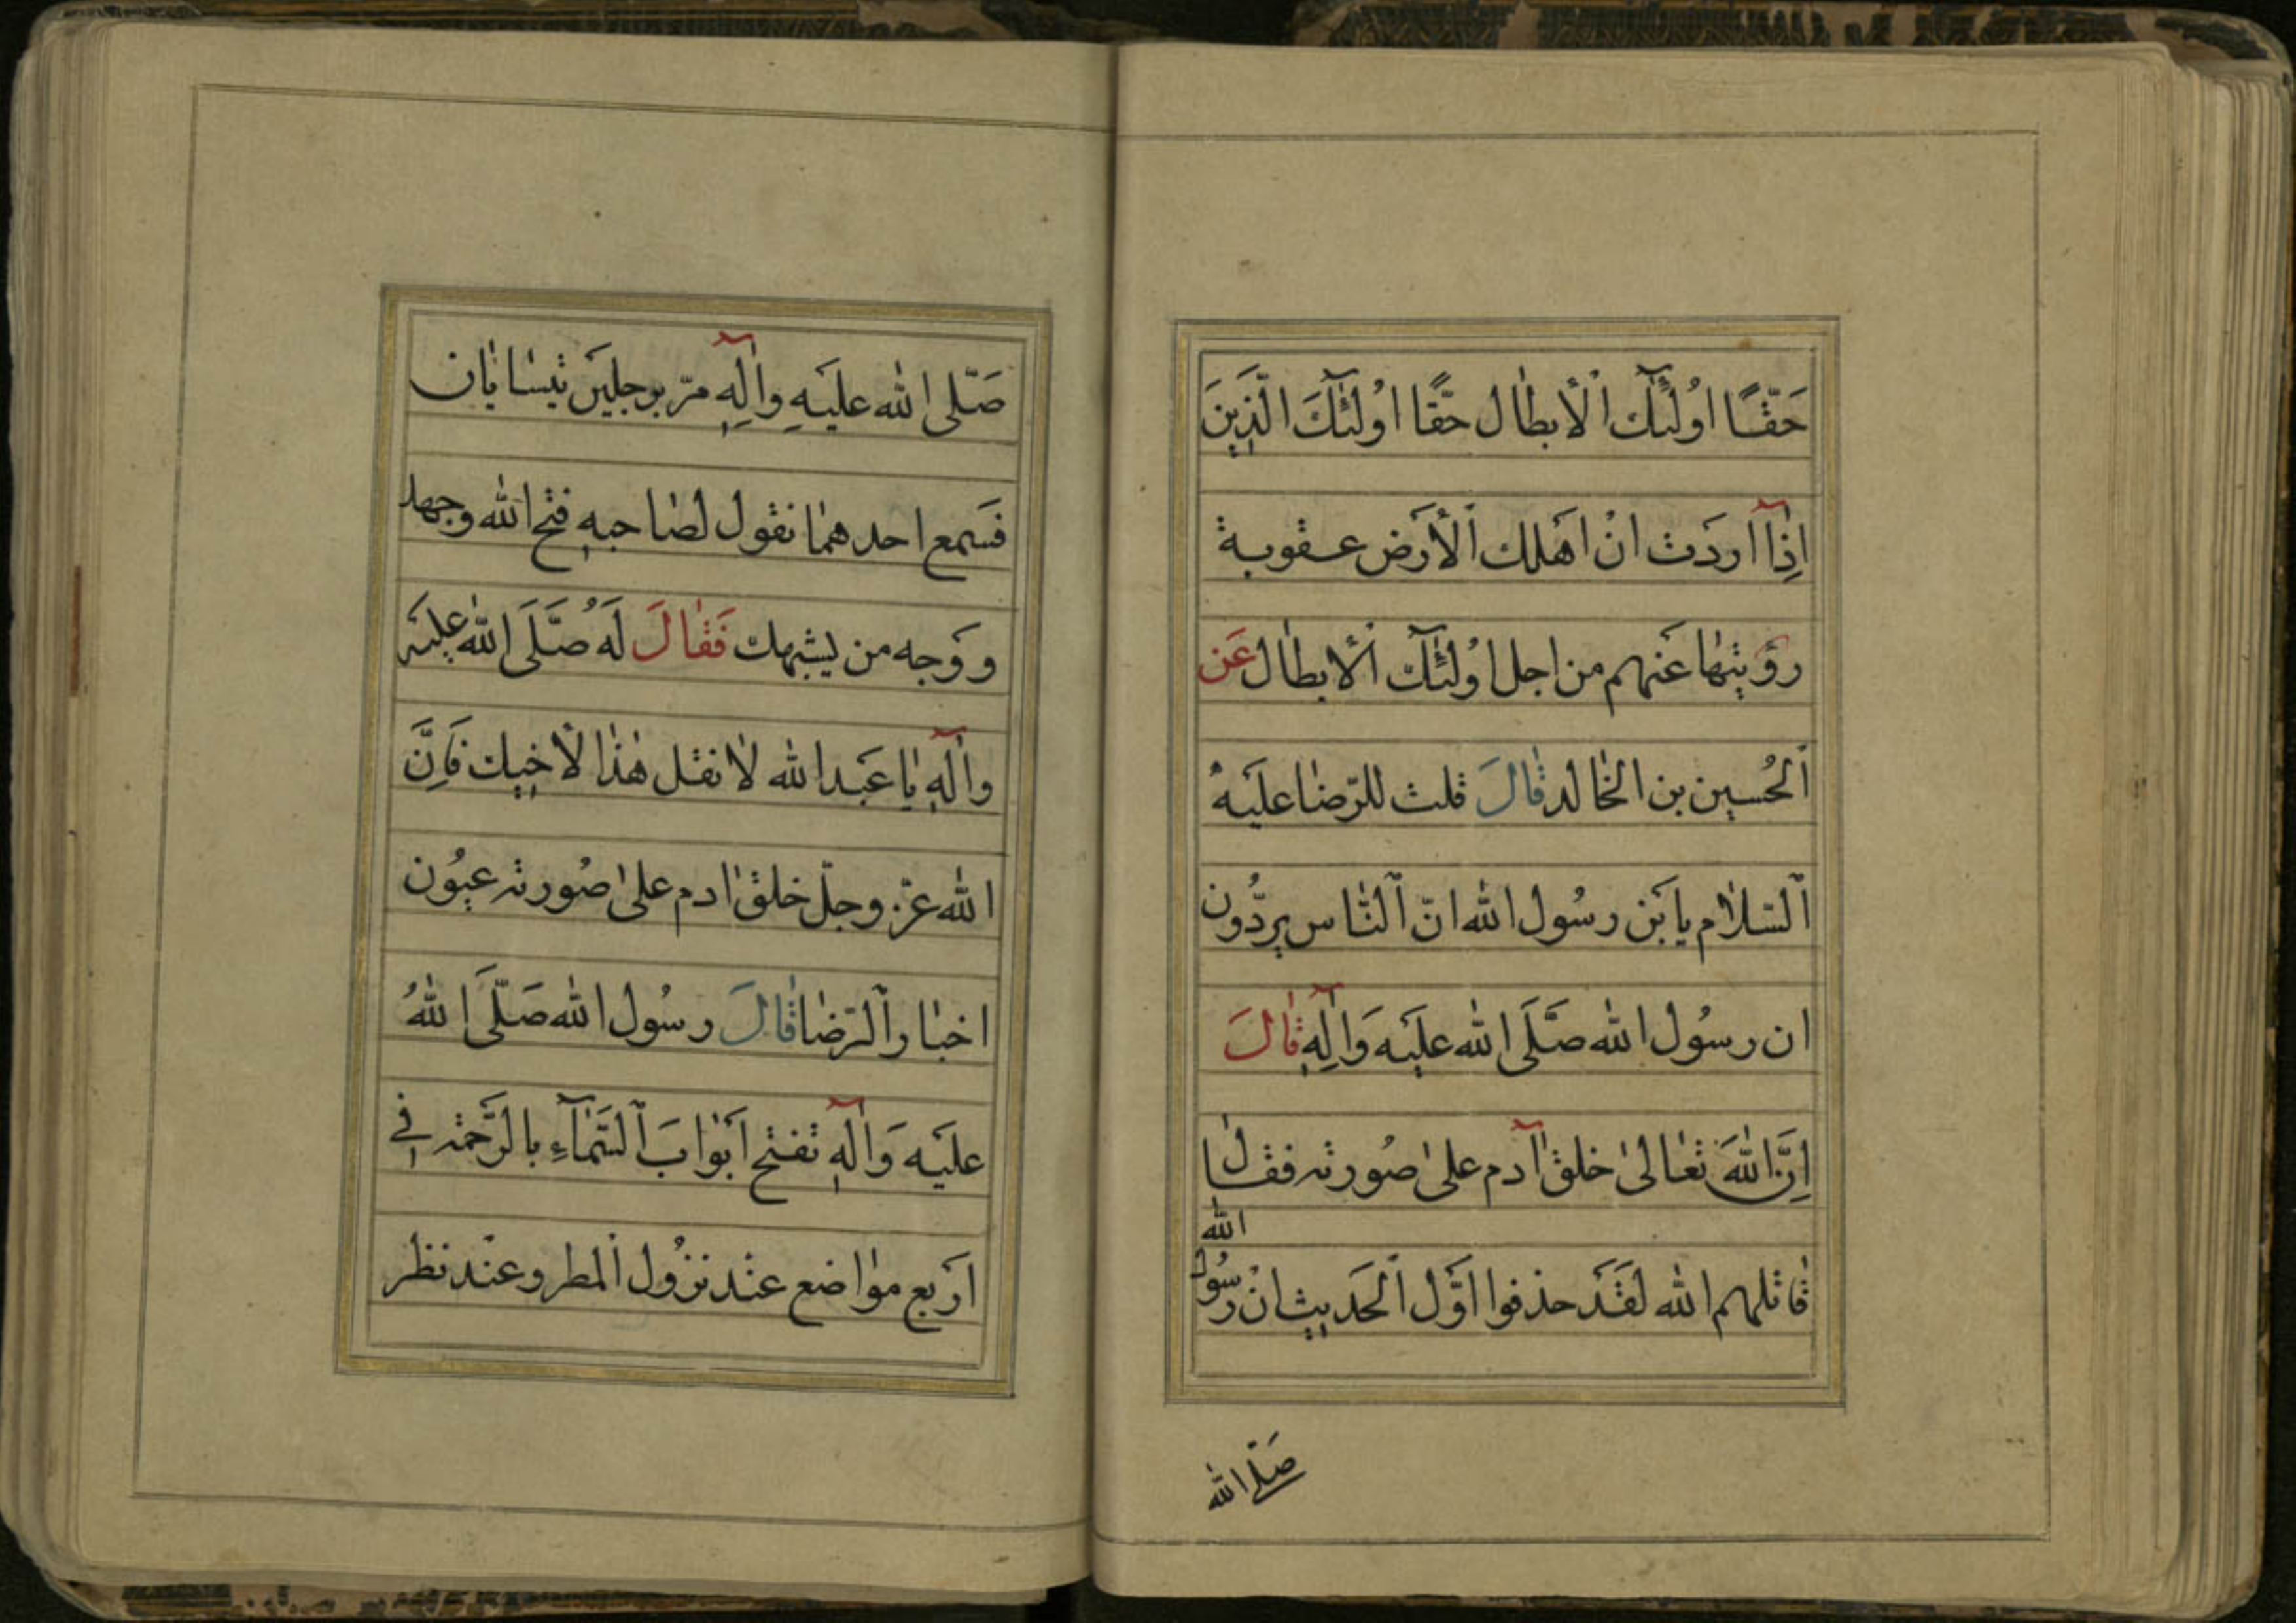 حَقّاً اُولٰئِٓكَ اْلأبطال حَقّاً اوُلٰئِٓكَ الَّذِينَ
اِذٰٓا اردَت انْ اهَلك اَلأرَض عقوبة
رؤيتها عَنهم من اجل اوُلٰئِٓك اْلأبطال عَن
اَلحُسين بن الخالد قٰالَ قلت للرّضا عليَهُ
اَلسّلاٰم يا بَن رسُول الله انّ اَلنّاس يردُّون
ان رسوُل الله صَلَّى الله عليَه وَاٰلِهِ قٰالَ
اِنَّ اللهَ تعٰالىٰ خلق اٰدم علىٰ صُورته فقال
قٰاتلهم الله لقَدَ حذفوا اوَّل اَلحَديث انْ رسُول الله
صَلّى الله
صَلّى الله عليَهِ واٰلِهِ مرّ برجليَن يتسابّان
فسَمع احدهمٰا نقول لصٰاحبهِ فتح الله وجهك
ووَجه من يشبهك فَقٰالَ لَهُ صَلَّىَ الله عليَه
واٰلهِ يٰا عَبدالله لاٰ نقل هٰذا لأخيك فَاِنَّ
الله عزّ وجلّ خلق اٰدم علىٰ صُورته عيوُن
اخبار اَلرّضٰا قٰالَ رسُول الله صَلّىَ اللهُ
عليَه وَاٰلهِ تفتح اَبوٰابَ اَلسَّمٰآءِ بالرَّحمَة في
اَربع موٰاضع عنْد نزوُل اَلمطر وعنْد نظر